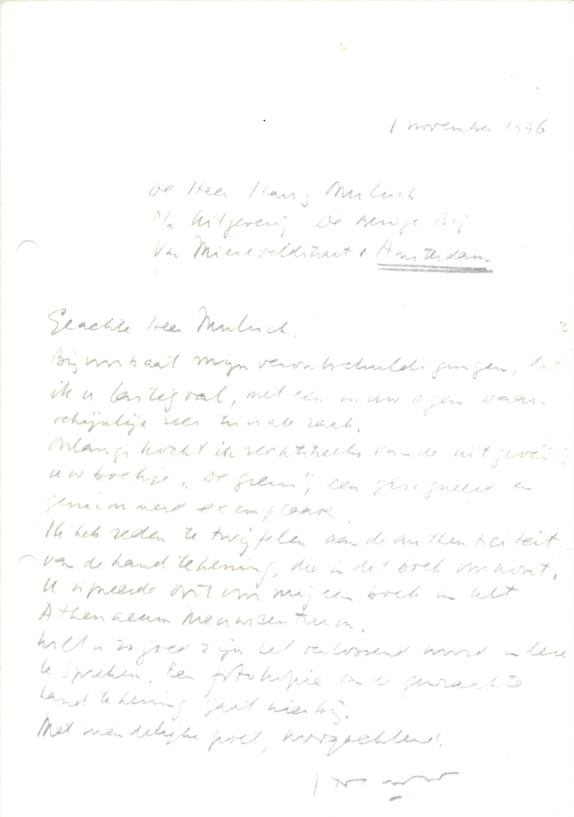 1 november 1976
De Heer Harry Mulisch
Na Uitgeverij De Bezige Bij
Van Miereveldstraat 1 Amsterdam
Geachte Heer Mulisch,
Bij voorbaat mijn verontschuldigingen, dat
ik u lastig val, met een in uw ogen waar-
schijnlijk zeer triviale zaak.
Onlangs kocht ik rechtstreeks van de uitgeverij
uw boekje "De grens", een gesigneerd en
genummerd exemplaar.
Ik heb reden te twijfelen aan de authenticiteit
van de handtekening, die in dit boek voorkomt.
U signeerde ooit voor mij een boek in het
Athenaeum Nieuwscentrum.
Wilt u zo goed zijn het verlossend woord in deze
te spreken. Een fotokopie van de gewraakte
handtekening gaat hierbij.
Met vriendelijke groet, hoogachtend,